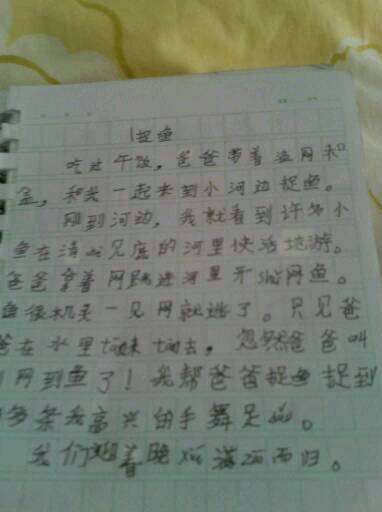 捉鱼
吃过午饭,爸爸带着渔网和
盆,和我一起来到小河边捉鱼。
刚到河边,我就看到许多小
鱼在清见底的河里快活地游。
爸爸拿着网跳进河里开始网鱼。
鱼很机灵一见网就逃了。只见爸
爸在水里来去,忽然爸爸叫
网到鱼了!我帮爸爸捉鱼捉到
多条我高兴的手舞足蹈。
我们迎着晚满而归。